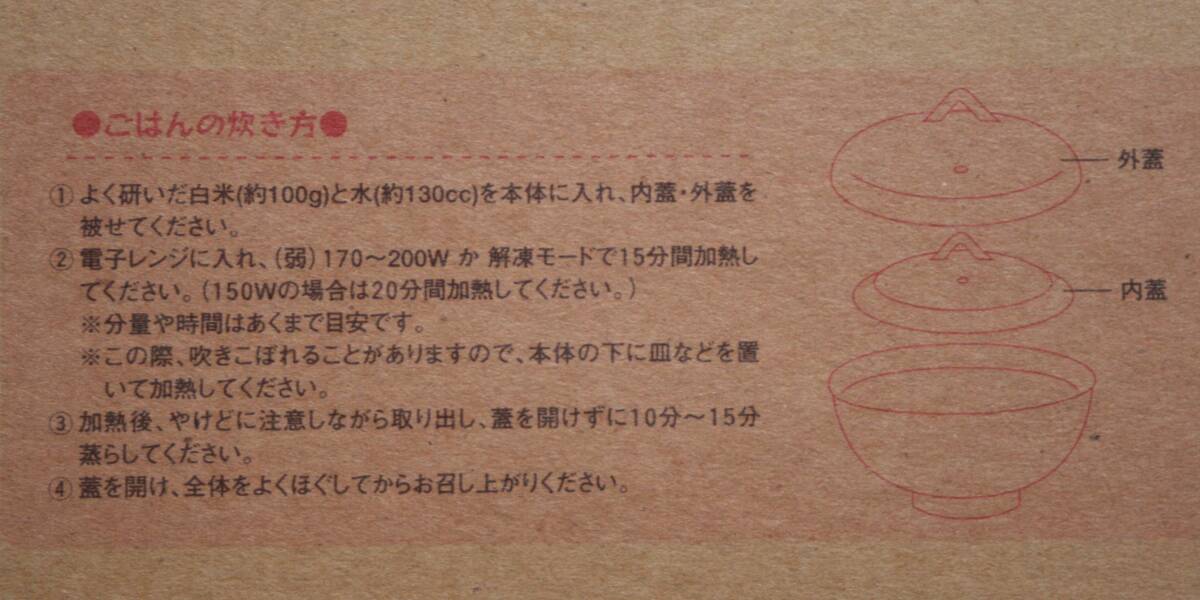 ●ごはんの炊き方●
① よく研いだ白米(約100g)と水(約130cc)を本体に入れ、内蓋・外蓋を
被せてください。
② 電子レンジに入れ、(弱)170〜200W か 解凍モードで15分間加熱し
てください。(150Wの場合は20分間加熱してください。)
※分量や時間はあくまで目安です。
※この際、吹きこぼれることがありますので、本体の下に皿などを置
いて加熱してください。
③ 加熱後、やけどに注意しながら取り出し、蓋を開けずに10分〜15分
蒸らしてください。
④ 蓋を開け、全体をよくほぐしてからお召し上がりください。
外蓋
内蓋